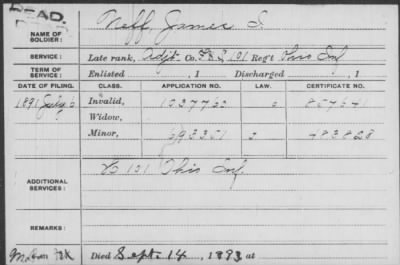 DEAD.
NAME OF SOLDIER: Neff, James I.
SERVICE: Late rank, Adjt. Co. F&S, 101 Reg't Ohio Inf
TERM OF SERVICE: Enlisted , 1 Discharged , 1
DATE OF FILING. CLASS. APPLICATION NO. LAW. CERTIFICATE NO.
1891 July 6 Invalid, 1037760 857641
Widow,
Minor, 593351 2 483828
ADDITIONAL SERVICES: 101 Ohio Inf
REMARKS:
Died Sept. 14, 1893, at